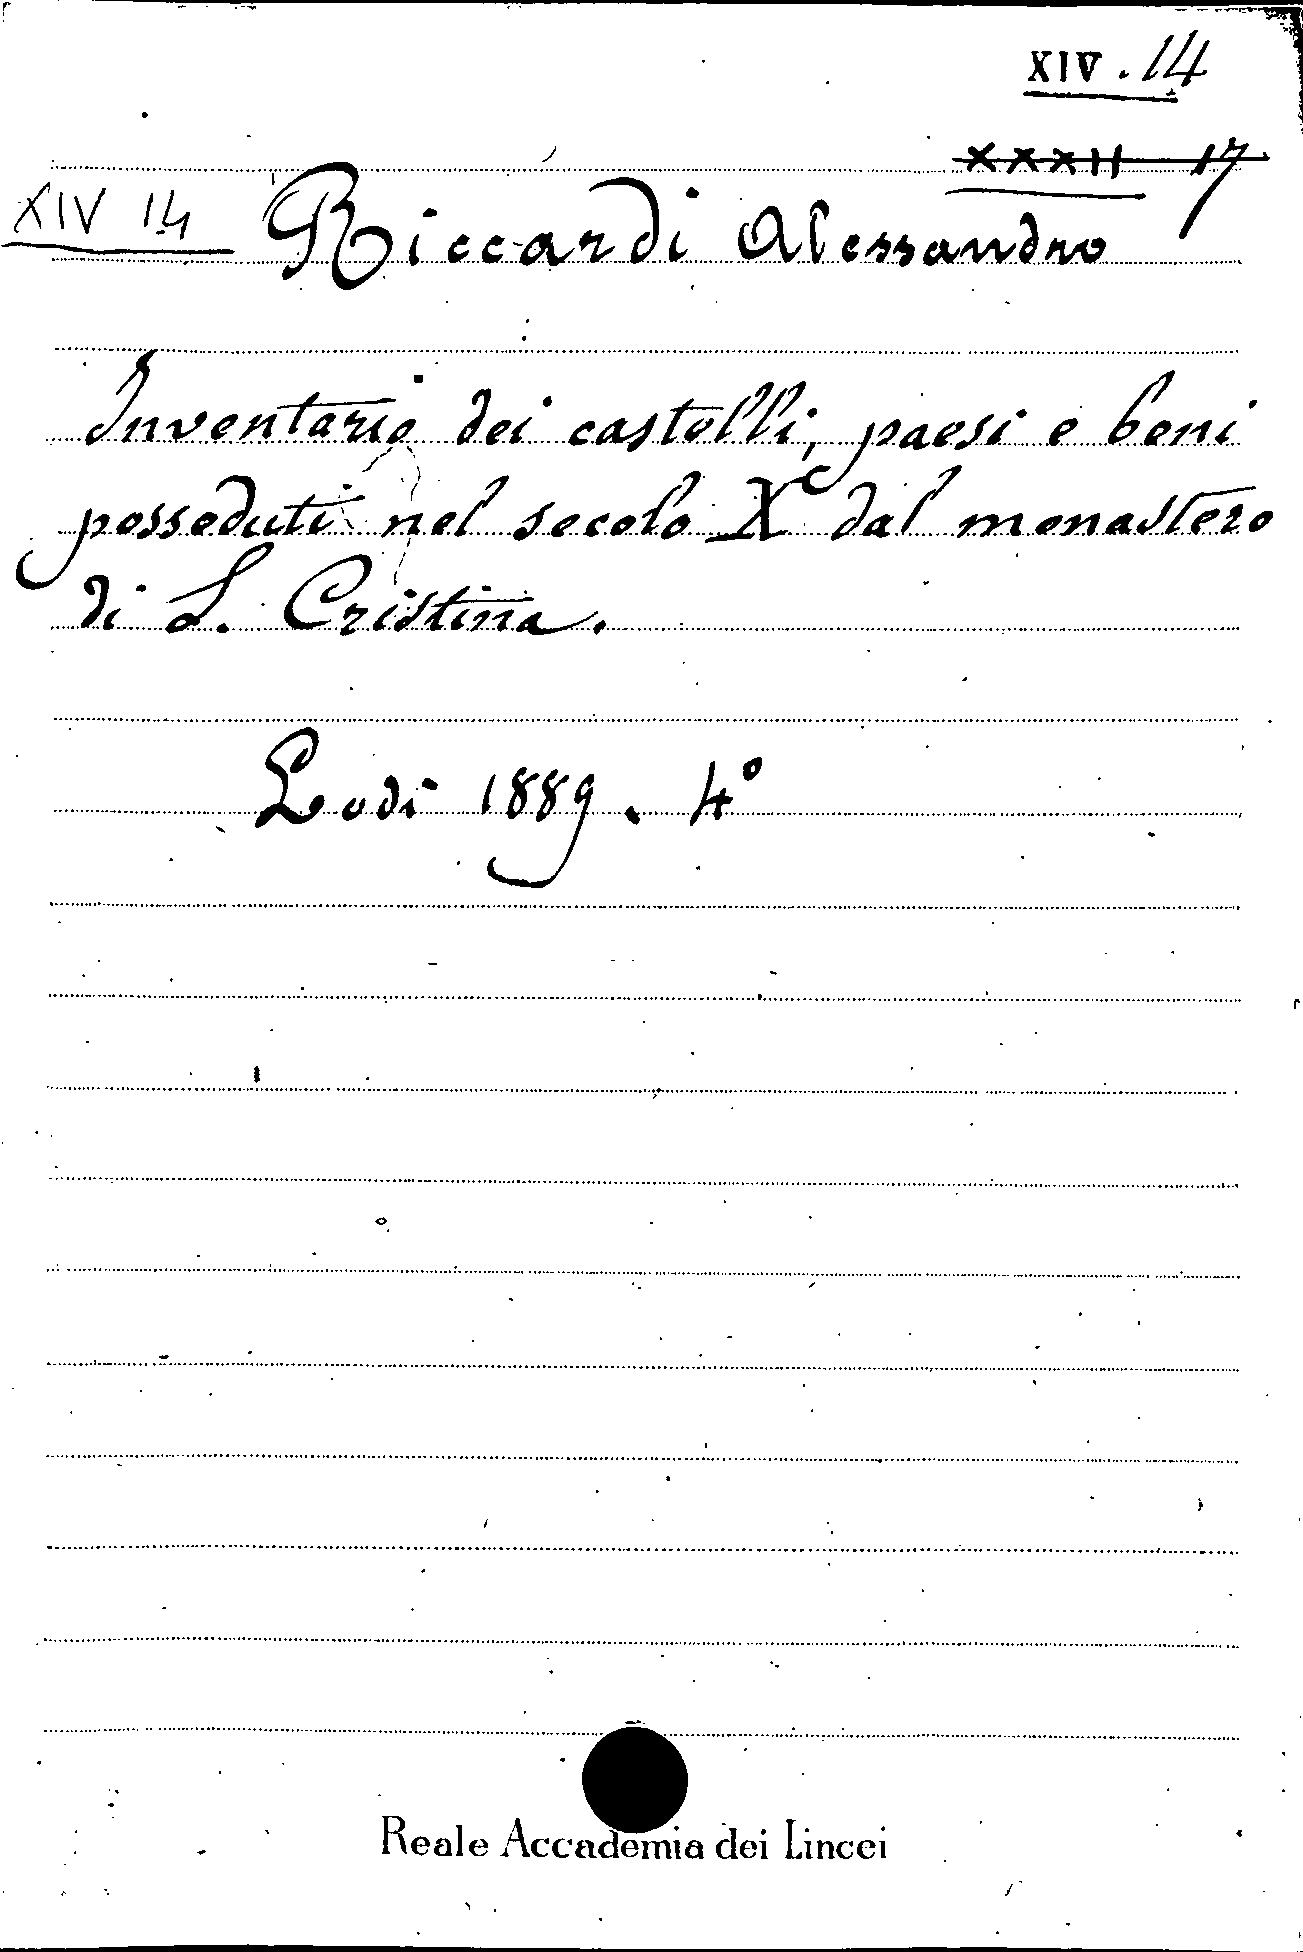 XIV . 14
XXXII 17
XIV 14 Riccardi Alessandro
Inventario dei castelli, paesi e beni
posseduti nel secolo X° dal monastero
di S. Cristina.
Lodi 1889. 4°
Reale Accademia dei Lincei